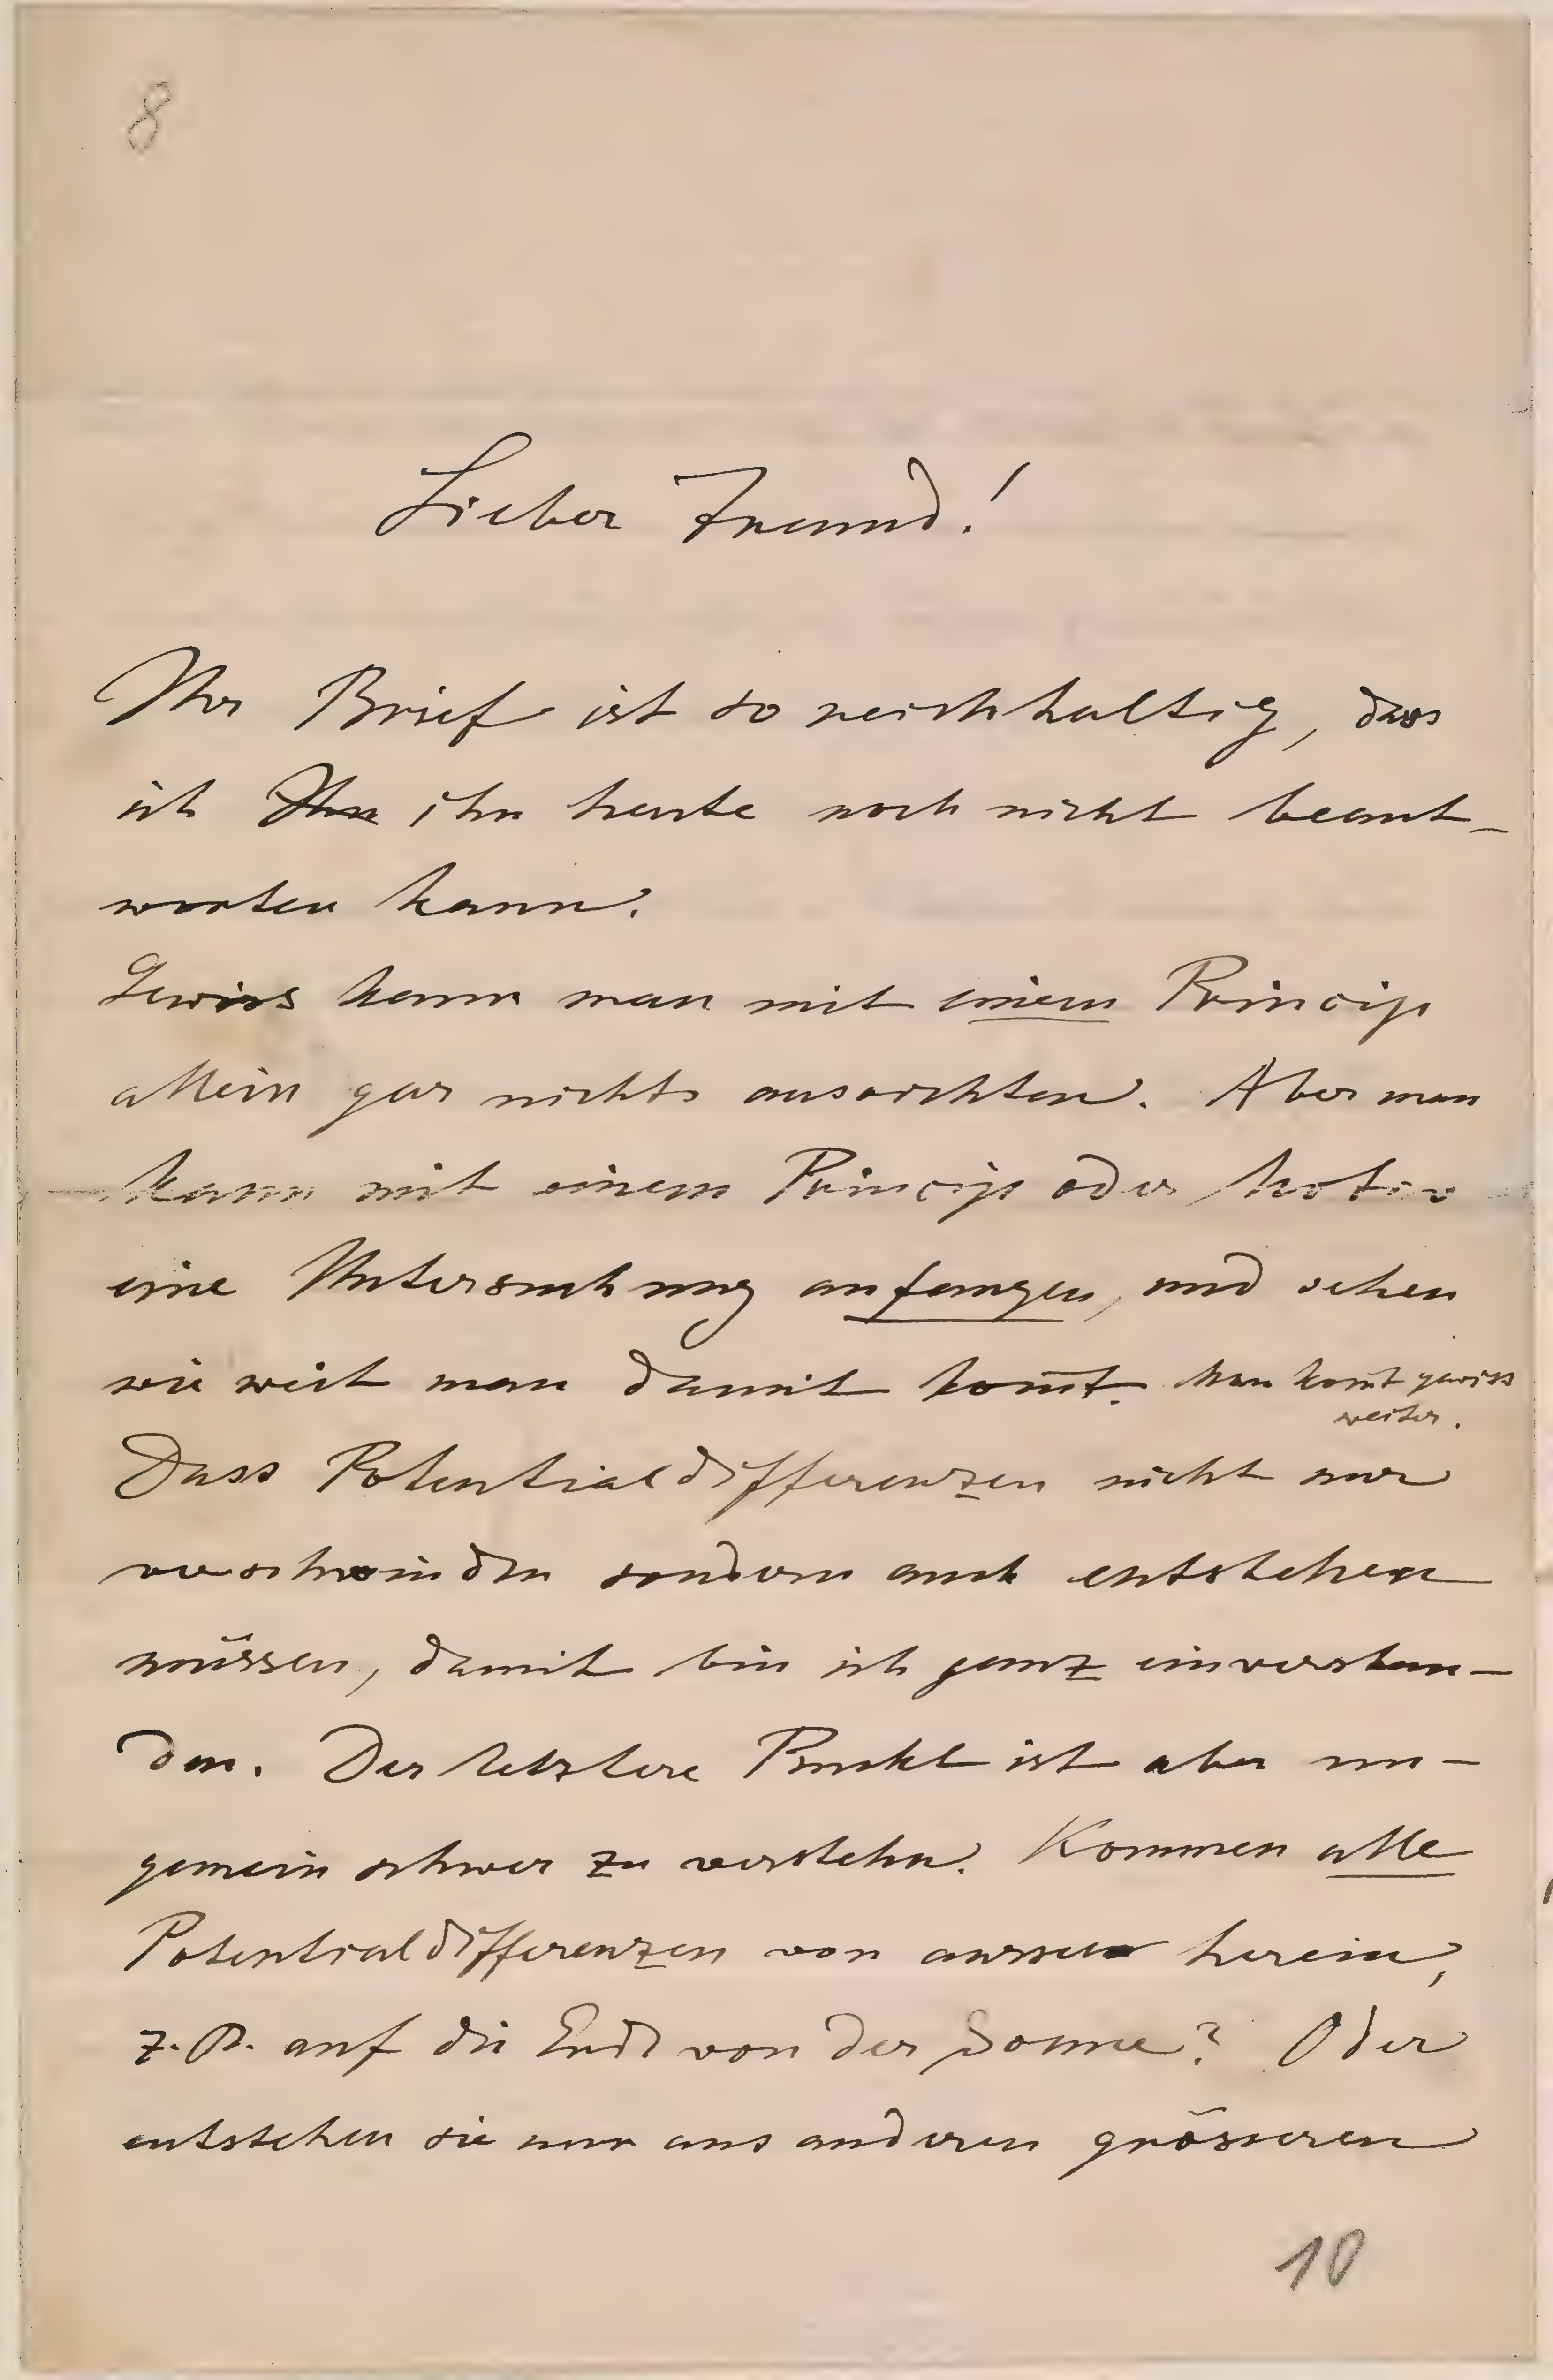 8
Lieber Freund!
Ihr Brief ist so reichhaltig, dass
ich Ihn ihn heute noch nicht beant-
worten kann.
Gewiss kann man mit einem Princip
allein gar nichts ausrichten. Aber man
kann mit einem Princip oder Motiv
eine Untersuchung anfangen, und sehen
wie weit man damit kom̅t. Man kom̅t gewiss
weiter.
Dass Potentialdifferenzen nicht nur
verschwinden sondern auch entstehen
müssen, damit bin ich ganz einverstan-
den. Der letztere Punkt ist aber un-
gemein schwer zu verstehn. Kommen alle
Potentialdifferenzen von aussen herein,
z. B. auf die Erde von der Sonne? Oder
entstehen sie nur aus anderen grösseren
10